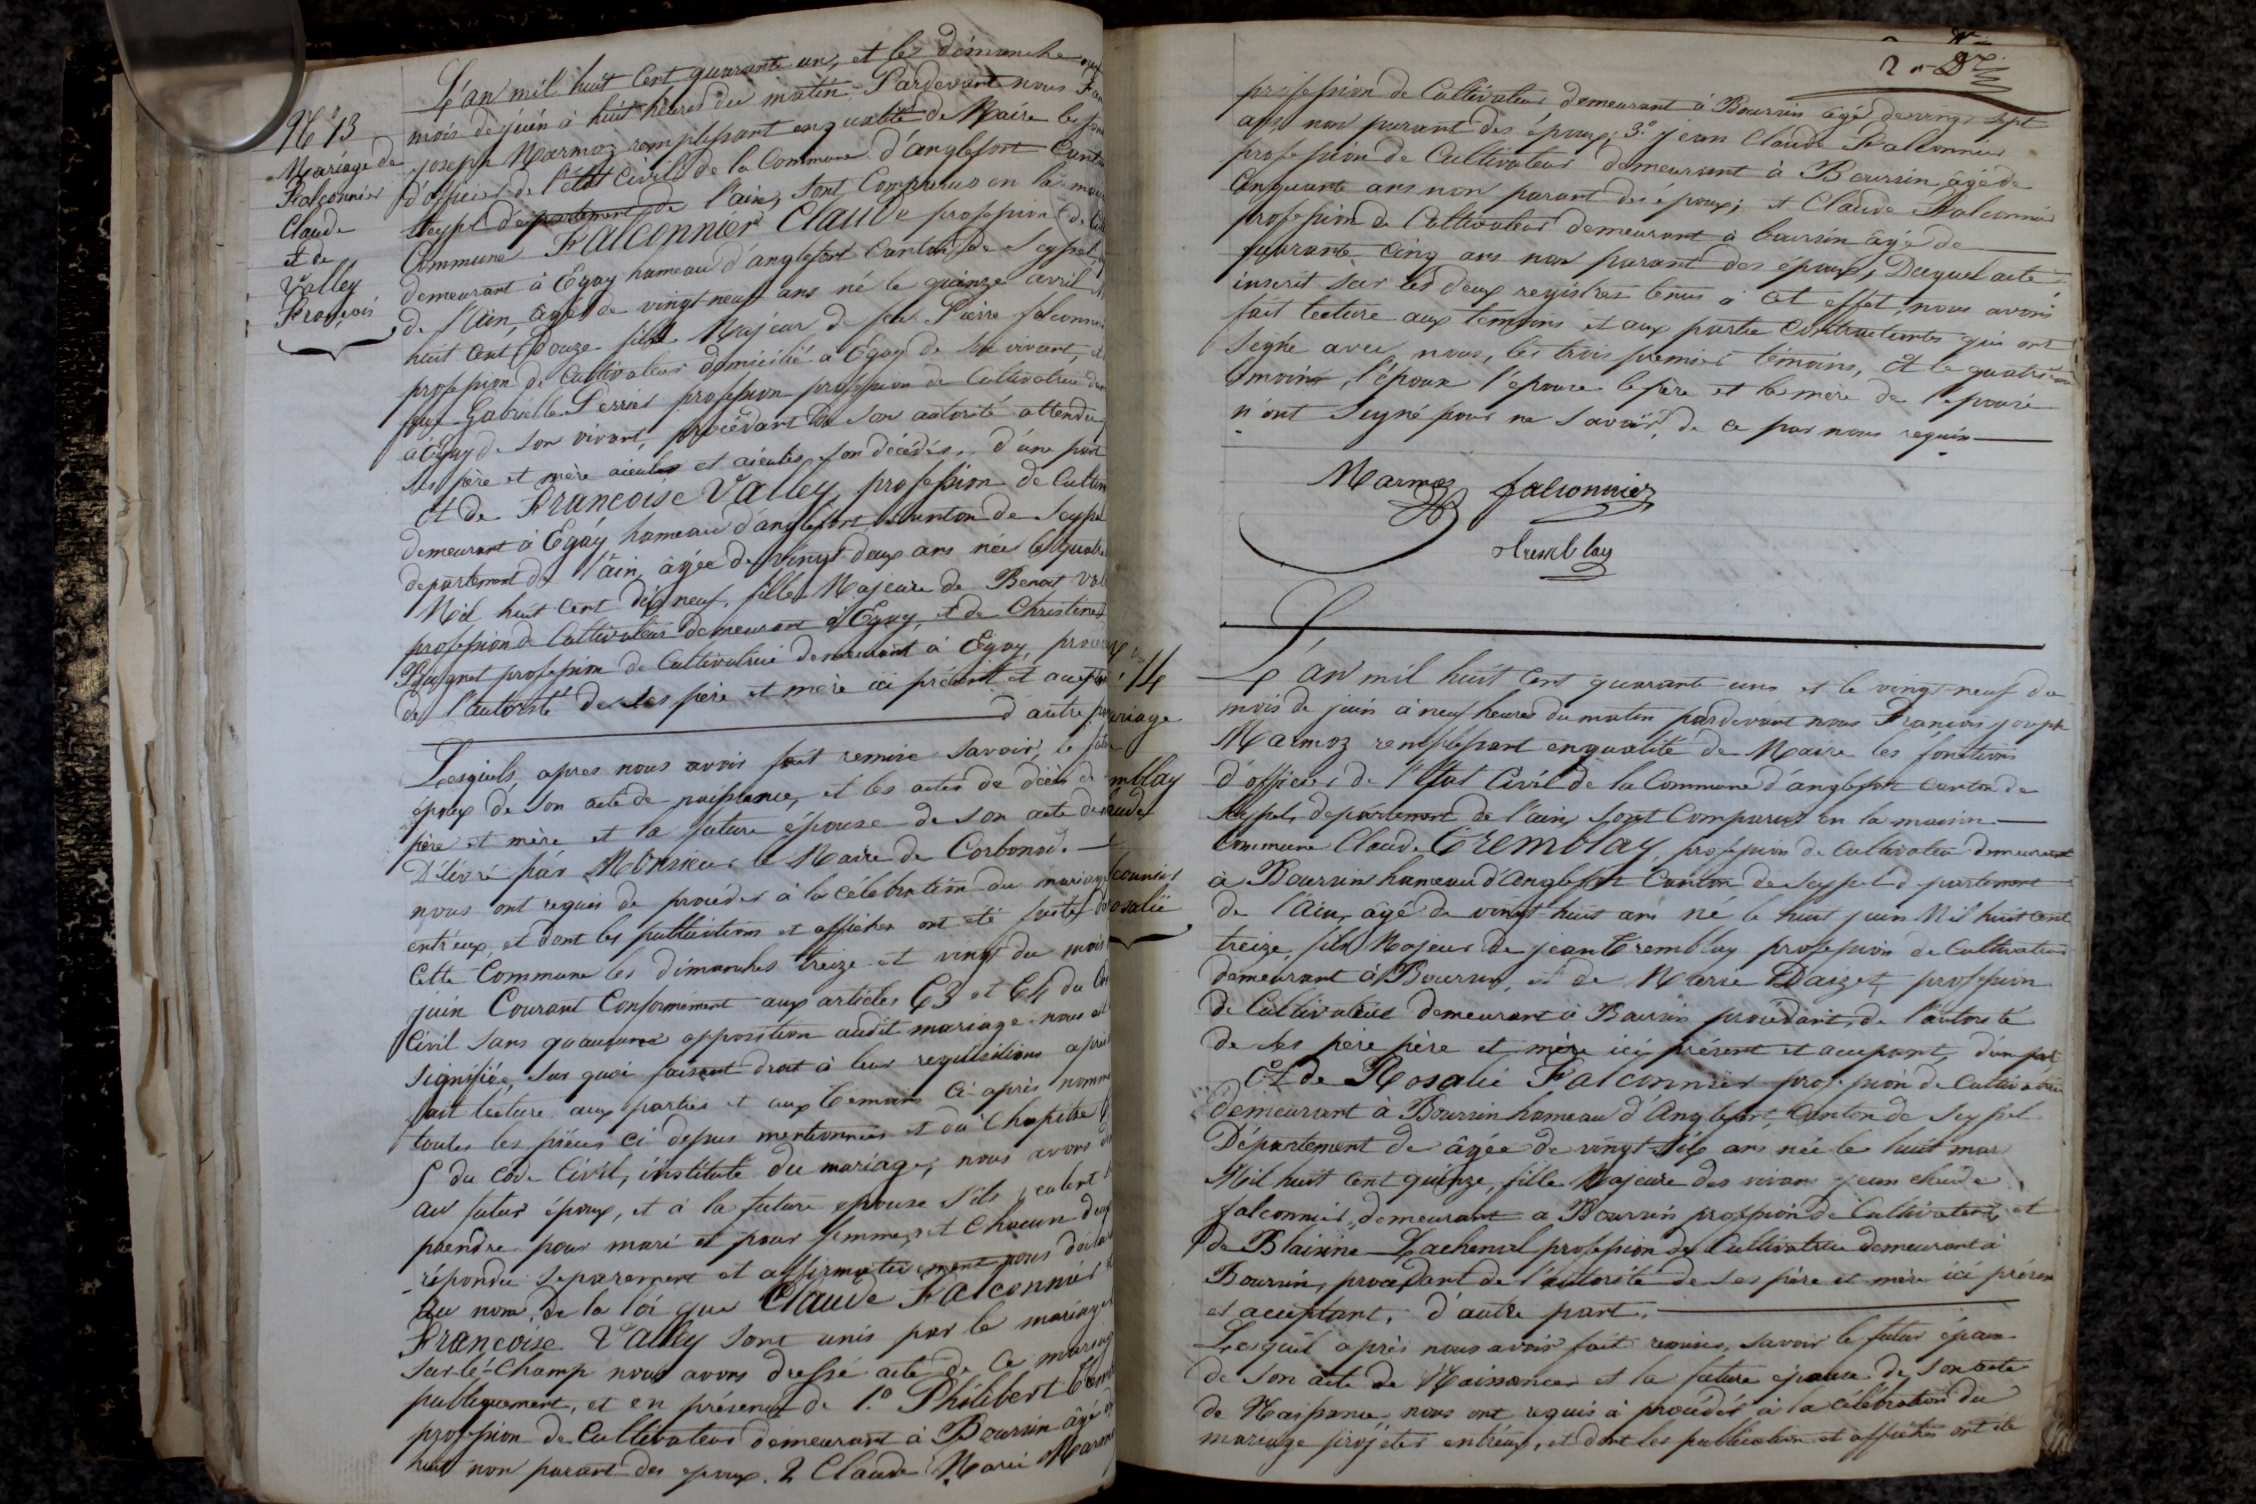 N° 13
Mariage de
Falconnier
Claude
et de
Valley
François
L'an mil huit cent quarante un, et les dimanche
mois de juin à huit heures du matin Pardevant nous
joseph Marmoz remplissant enqualité de Maire les
d'officier de l'état Civil de la Commune d'anglefort Cant
Seyssel département de l'ain, sont Comparus en la
Commune Falconnier Claude profession de
demeurant à Egay hameau d'anglefort Canton de Seyssel
de l'Ain, âgé de vingt neuf ans né le quinze avril
huit cent Douze fils Majeur de feu Pierre falconni
profession de Cultivateur domicilié à Egay de son vivant, et
feu Gabrielle Perrier profession profession de Cultivatrice
à Egay de son vivant, procédant de son autorité attendu
ses père et mère aieules et aieules son décédés, d'une part
Et de Francoise Valley, profession de Cultiv
demeurant à Egay hameau d'anglefort Canton de Seyssel
departement de l'ain, âgée de vingt deux ans née le quatre
Mil huit cent dix neuf, fille Majeure de Benoit Val
profession de Cultivateur demeurant à Egay, et de Christine
profession de Cultivatrice demeurant à Egay,
de l'autorité de ses père et mère ici présent et
d'autre
Lesquels, apres nous avoir fait remise savoir le
époux de son acte de naissance, et les actes de décès de
père et mère et la future épouse de son acte de
Délivré par Monsieur le Maire de Corbonod.
nous ont requis de procéder à la célébration du mariage
entr'eux, et dont les publications et affiches ont été faites
Cette Commune les dimanches treize et vingt du mois
juin Courant Conformément aux articles 63 et 64 du
Civil sans qu'aucune opposition audit mariage nous ait
signifiée, sur quoi faisant droit à leur requisitions après
fait lecture aux parties et aux témoins ci-après nommé
toutes les pièces ci dessus mentionnées et du Chapitre
5 du code Civil, institulé du mariage, nous avons
au futur époux, et à la future epouse s'ils veulent
prendre pour mari et pour femme et Chacun d'eux
répondu séparement et affirmativement nous
au nom de la loi que Claude Falconnier
Francoise Valley sont unis par le mariage
sur-le-champ nous avons dressé acte de ce mariage
publiquement, et en présence de 1° Philibert
profession de Cultivateur demeurant à Boursin âgé
huit non parant des epoux. 2 Claude Marie Marmo
profession de Cultivateur demeurant à Boursin âgé de vingt sept
ans non parant des époux; 3° jean Claude Falconnier
profession de Cultivateur demeurant à Boursin âgé de
Cinquante ans non parant des époux; et Claude Falconnier
profession de Cultivateur demeurant à boursin âgé de
quarante cinq ans non parant des époux, Duquel acte
inscrit sur les deux registres tenus à cet effet, nous avons
fait lecture aux temoins et aux partie Contractantes qui ont
Signé avec nous, les trois premier témoins, et le quatrième
témoins, l'époux l'epouse le père et la mère de l'epouse
n'ont signé pour ne savoir, de ce par nous requis
Marmoz falconnier
tremblay
14
ariage
mblay
laude
lconnier
osalie
L'an mil huit cent quarante un et le vingt-neuf du
mois de juin à neuf heures du matin pardevant nous François joseph
Marmoz remplissant enqualité de Maire les fonctions
d'officier de l'Etat Civil de la Commune d'anglefort canton de
Seyssel, departement de l'ain, sont Comparus en la maison
Commune Claude Tremblay, profession de Cultivateur demeurant
à Boursin hameau d'Anglefort Canton de Seyssel departement
de l'Ain, âgé de vingt huit ans né le huit juin Mil huit cent
treize, fils Majeur de jean Tremblay profession de Cultivateur
demeurant à Boursin, et de Marie Daizet profession
de Cultivatrice demeurant à Boursin procédant de l'autorité
de ses père père et mère ici présent et acceptant, d'un part
Et de Rosalie Falconnier profession de Cultivatrice
demeurant à Boursin hameau d'Anglefort, Canton de Seyssel
Département de âgée de vingt six ans née le huit mars
Mil huit cent quinze, fille Majeure des vivans jean claude
falconnier, demeurant a Boursin profession de Cultivateur, et
de Blaisine Lachenal profession de Cultivatrice demeurant à
Boursin, procédant de l'autorité de ses père et mère ici présen
et acceptant, d'autre part.
Lesquil après nous avoir fait remise, savoir le futur époux
de son acte de Naissance et la future épouse de son acte
de Naissance nous ont requis à procéder à la célébration du
mariage projetés entr'eux, et dont les publication et affiches ont été